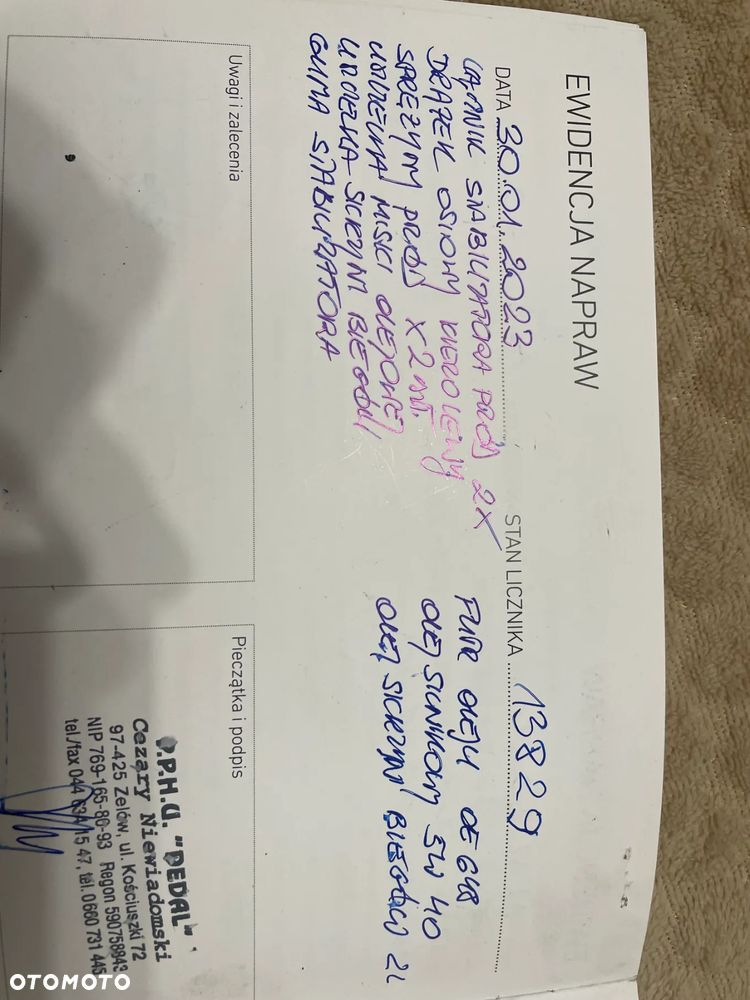 EWIDENCJA NAPRAW
DATA 30.01.2023 STAN LICZNIKA 13829
ŁĄCZNIK STABILIZATORA PRZÓD 2X
DRĄŻEK OSIOWY KIEROWNICZY
SPRĘŻYNY PRZÓD X2 szt.
USZCZELKA MISKI OLEJOWEJ
USZCZELKA SKRZYNI BIEGÓW
GUMA STABILIZATORA
FILTR OLEJU OE 648
OLEJ SILNIKOWY 5W40
OLEJ SKRZYNI BIEGÓW 2L
Uwagi i zalecenia
Pieczątka i podpis
P.P.H.U. "DEDAL"
Cezary Niewiadomski
97-425 Zelów, ul. Kościuszki 72
NIP 769-165-80-93 Regon 590758943
tel./fax 044 634 15 47, tel. 0660 731 445
OTOMOTO